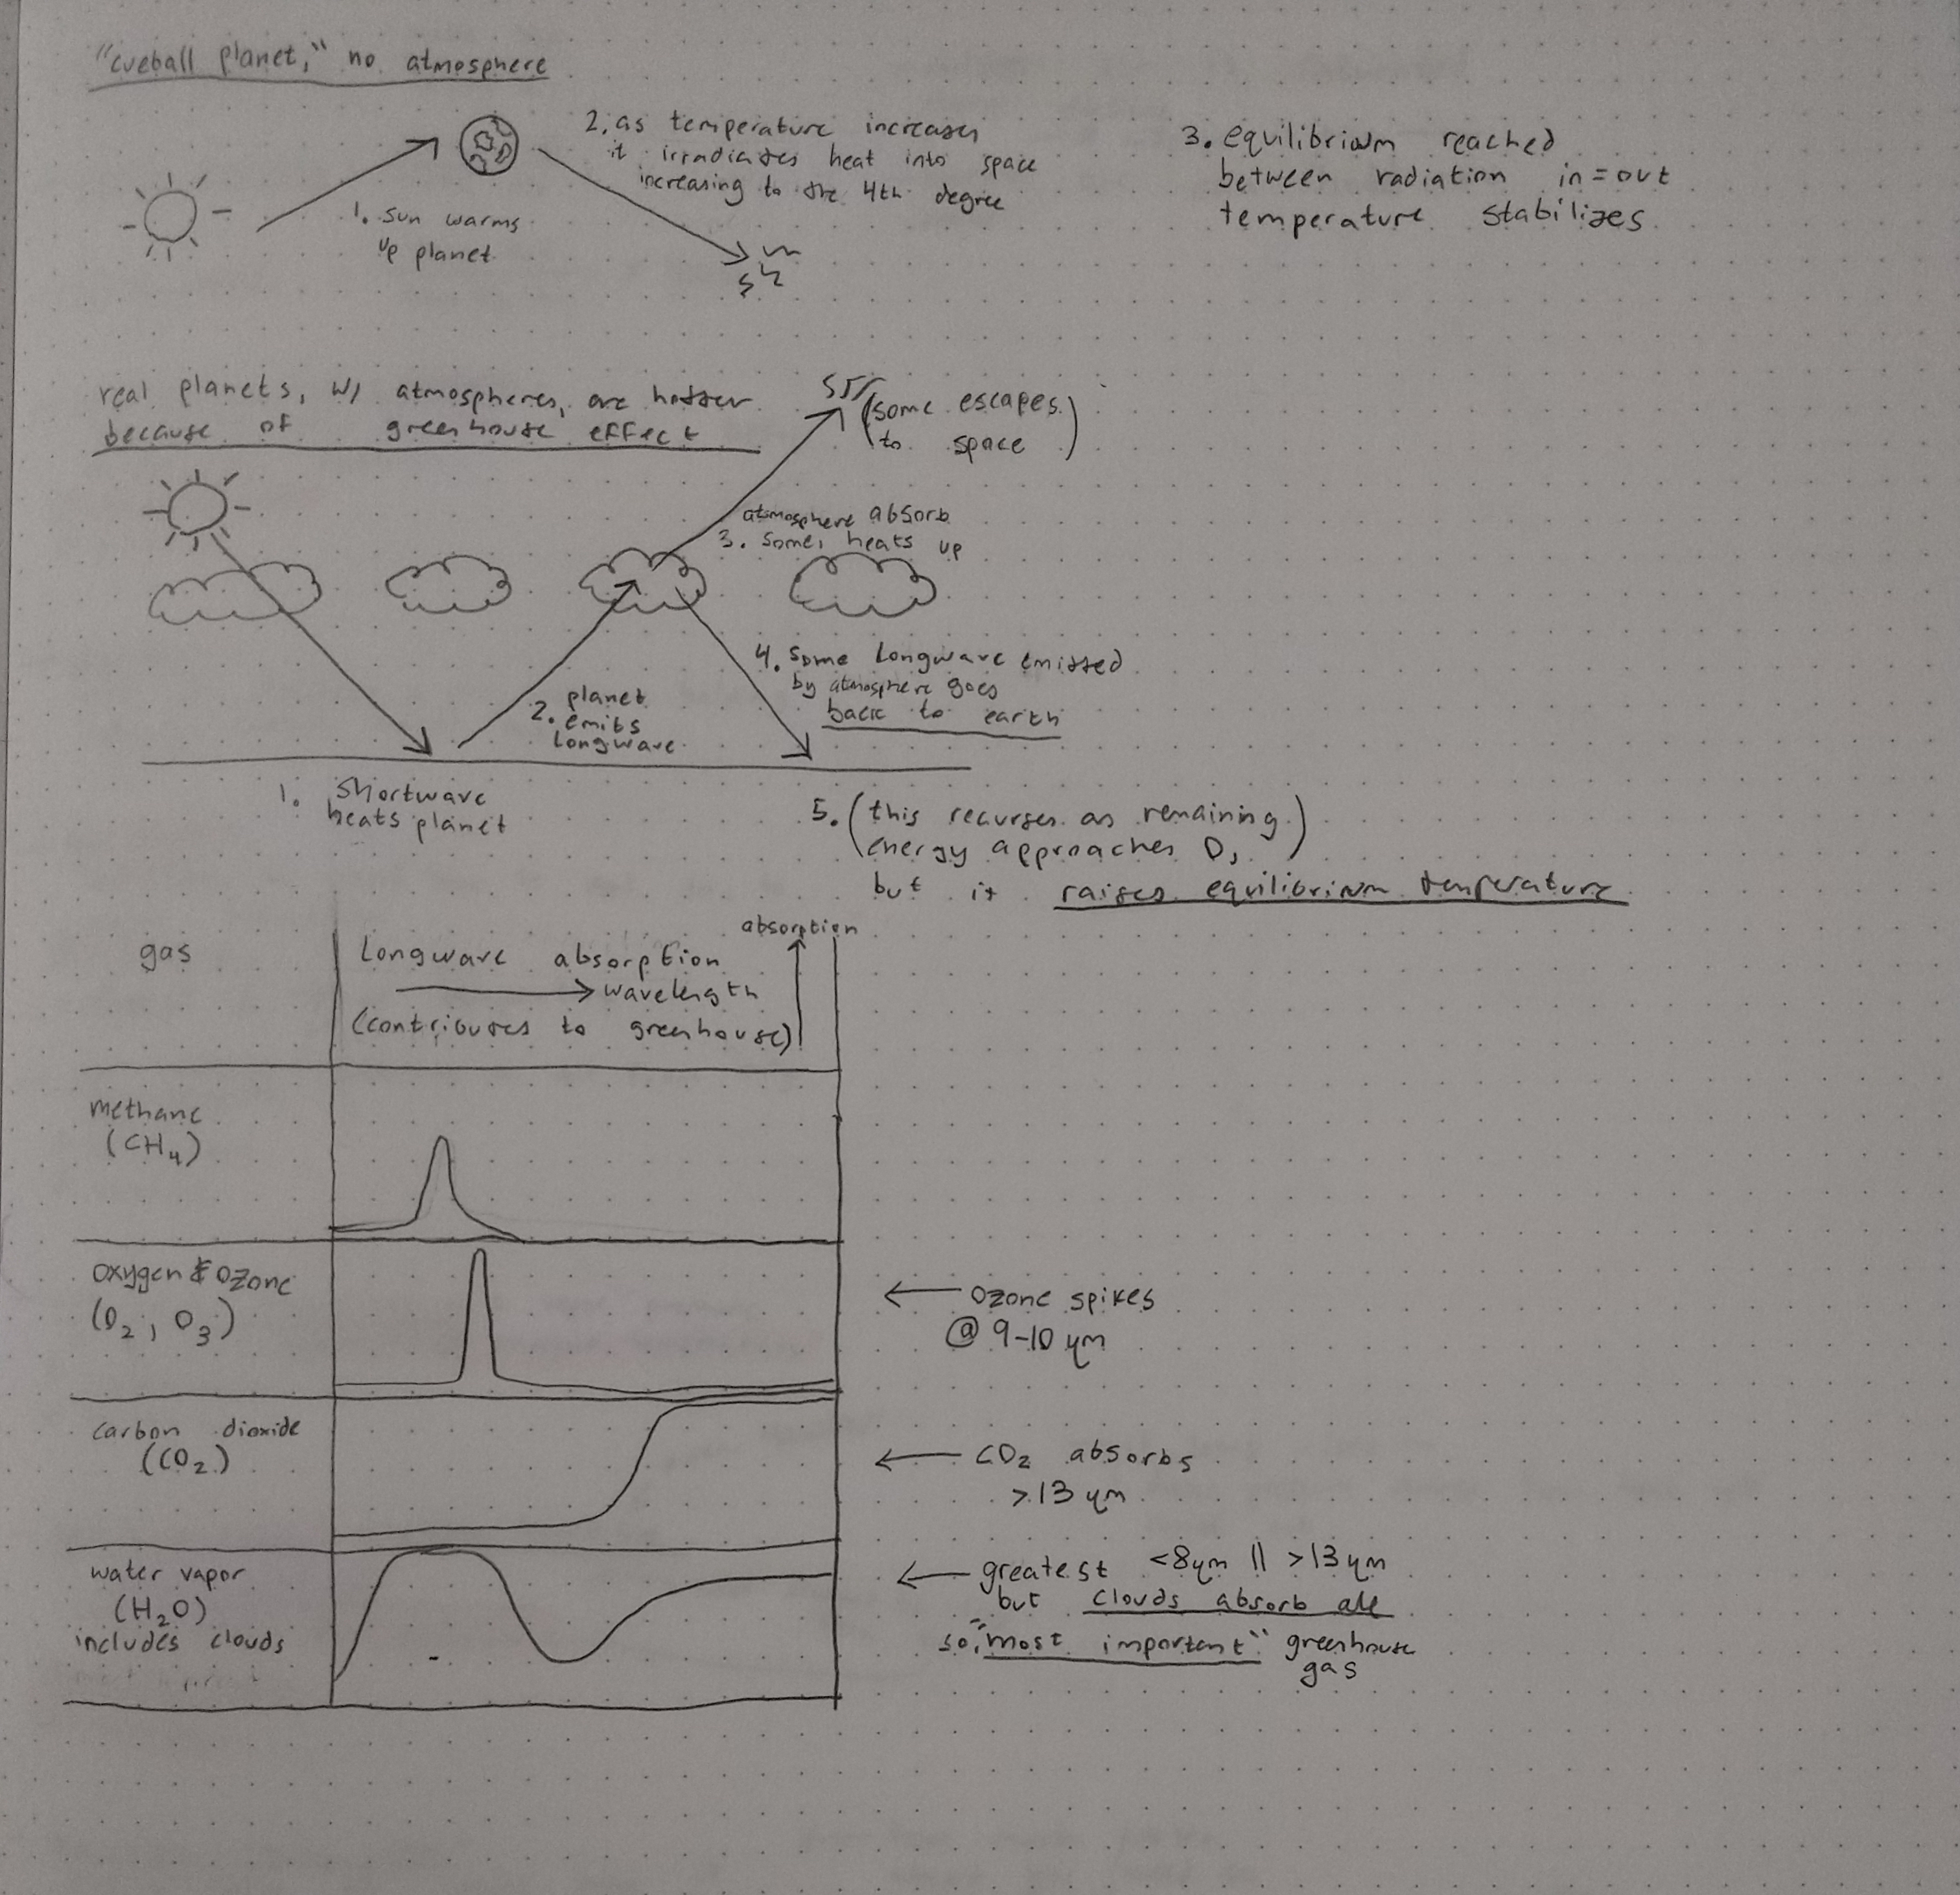 "cueball planet," no atmosphere
1. sun warms
up planet
2. as temperature increases
it irradiates heat into space
increasing to the 4th degree
3. equilibrium reached
between radiation in = out
temperature stabilizes
real planets, w/ atmospheres, are hotter
because of greenhouse effect
(some escapes
to space)
atmosphere absorb
3. some, heats up
4. some longwave emitted
by atmosphere goes
back to earth
planet
2. emits
longwave
1. shortwave
heats planet
5. (this recurses as remaining
energy approaches 0,)
but it raises equilibrium temperature
gas
longwave absorption
→ wavelength
(contributes to greenhouse)
absorption
methane
(CH₄)
oxygen & ozone
(O₂, O₃)
← ozone spikes
@ 9-10 μm
carbon dioxide
(CO₂)
← CO₂ absorbs
>13 μm
water vapor
(H₂O)
includes clouds
← greatest <8μm || >13 μm
but clouds absorb all
so, "most important" greenhouse
gas